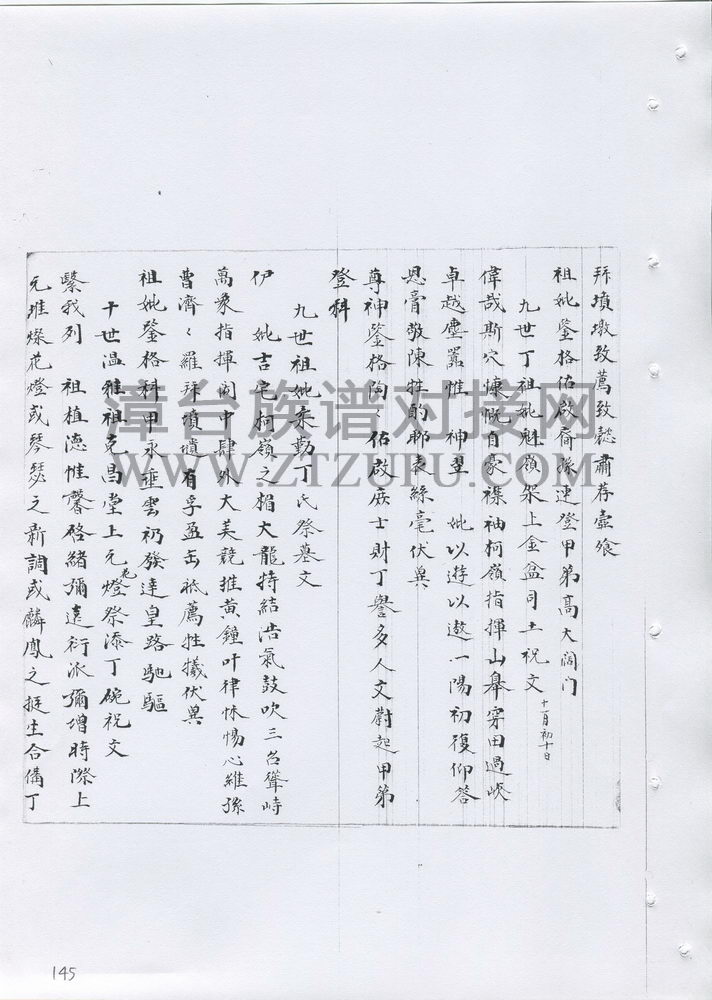 拜墳墩致蔫致懿肅荐壺飧
祖妣鑒格佑啟裔孫連登甲第高大闊門
九世丁祖妣魁嶺架上金盆司土祝文 十一月初十日
偉哉斯穴慷慨自豪襟袖柯嶺指揮山皋穿田過峽
卓越塵囂惟 神塋 妣以遊以遨一陽初復仰答
恩膏敬陳牲酌鄙表絲毫伏冀
尊神鑒格陶々佑啟庶士財丁譽多人文蔚起甲第
登科
九世祖妣柔勤丁氏祭墓文
伊 妣吉宅柯嶺之楣大龍特結浩氣鼓吹三台聳峙
萬象指揮闳中肆外大美競推黃鐘叶律怵惕心維孫
曹濟々羅拜墳壝有孚盈缶祇薦牲犠伏冀
祖妣鑒格科甲永垂雲礽發達皇路馳驅
十世溫雅祖克昌堂上元花燈祭添丁碗祝文
繄我列 祖植德惟馨啓緒彌遠衍派彌增時際上
元堆燦花燈或琴瑟之新調或麟鳳之挺生合備丁
漳台族谱对接网
WWW.ZTZUPU.COM
145